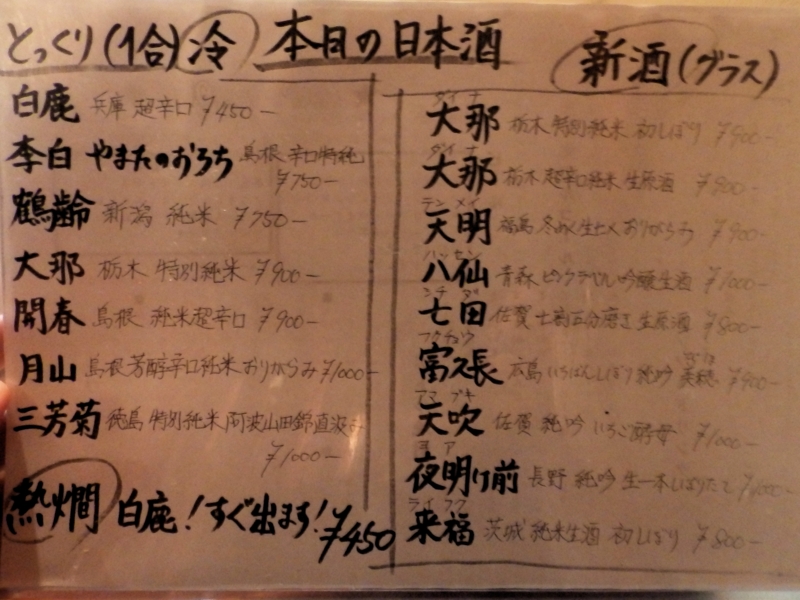 本日の日本酒
とっくり(1合) 冷
白鹿 兵庫 超辛口 ¥450-
李白 やまたのおろち 島根 辛口特純
¥750-
鶴齢 新潟 純米 ¥750-
大那 栃木 特別純米 ¥900-
開春 島根 純米超辛口 ¥900-
月山 島根芳醇辛口純米おりがらみ ¥1000-
三芳菊 徳島 特別純米 阿波山田錦直汲み
¥1000-
熱燗 白鹿!すぐ出ます!¥450
新酒(グラス)
ダイナ
大那 栃木 特別純米 初しぼり ¥900-
ダイナ
大那 栃木 超辛口純米 生原酒 ¥900-
テンメイ
天明 福島 おりがらみ ¥900-
ハッセン
八仙 青森 ピンクラベル吟醸生酒 ¥1000-
シチダ
七田 佐賀 七割五分磨き 生原酒 ¥800-
フクチョウ
富久長 広島 いちばんしぼり 純吟 ¥900-
アマブキ
天吹 佐賀 純吟 いちご酵母 ¥1000-
ヨア
夜明け前 長野 純吟 生一本しぼりたて ¥1000-
ライフク
来福 茨城 純米生酒 初しぼり ¥800-